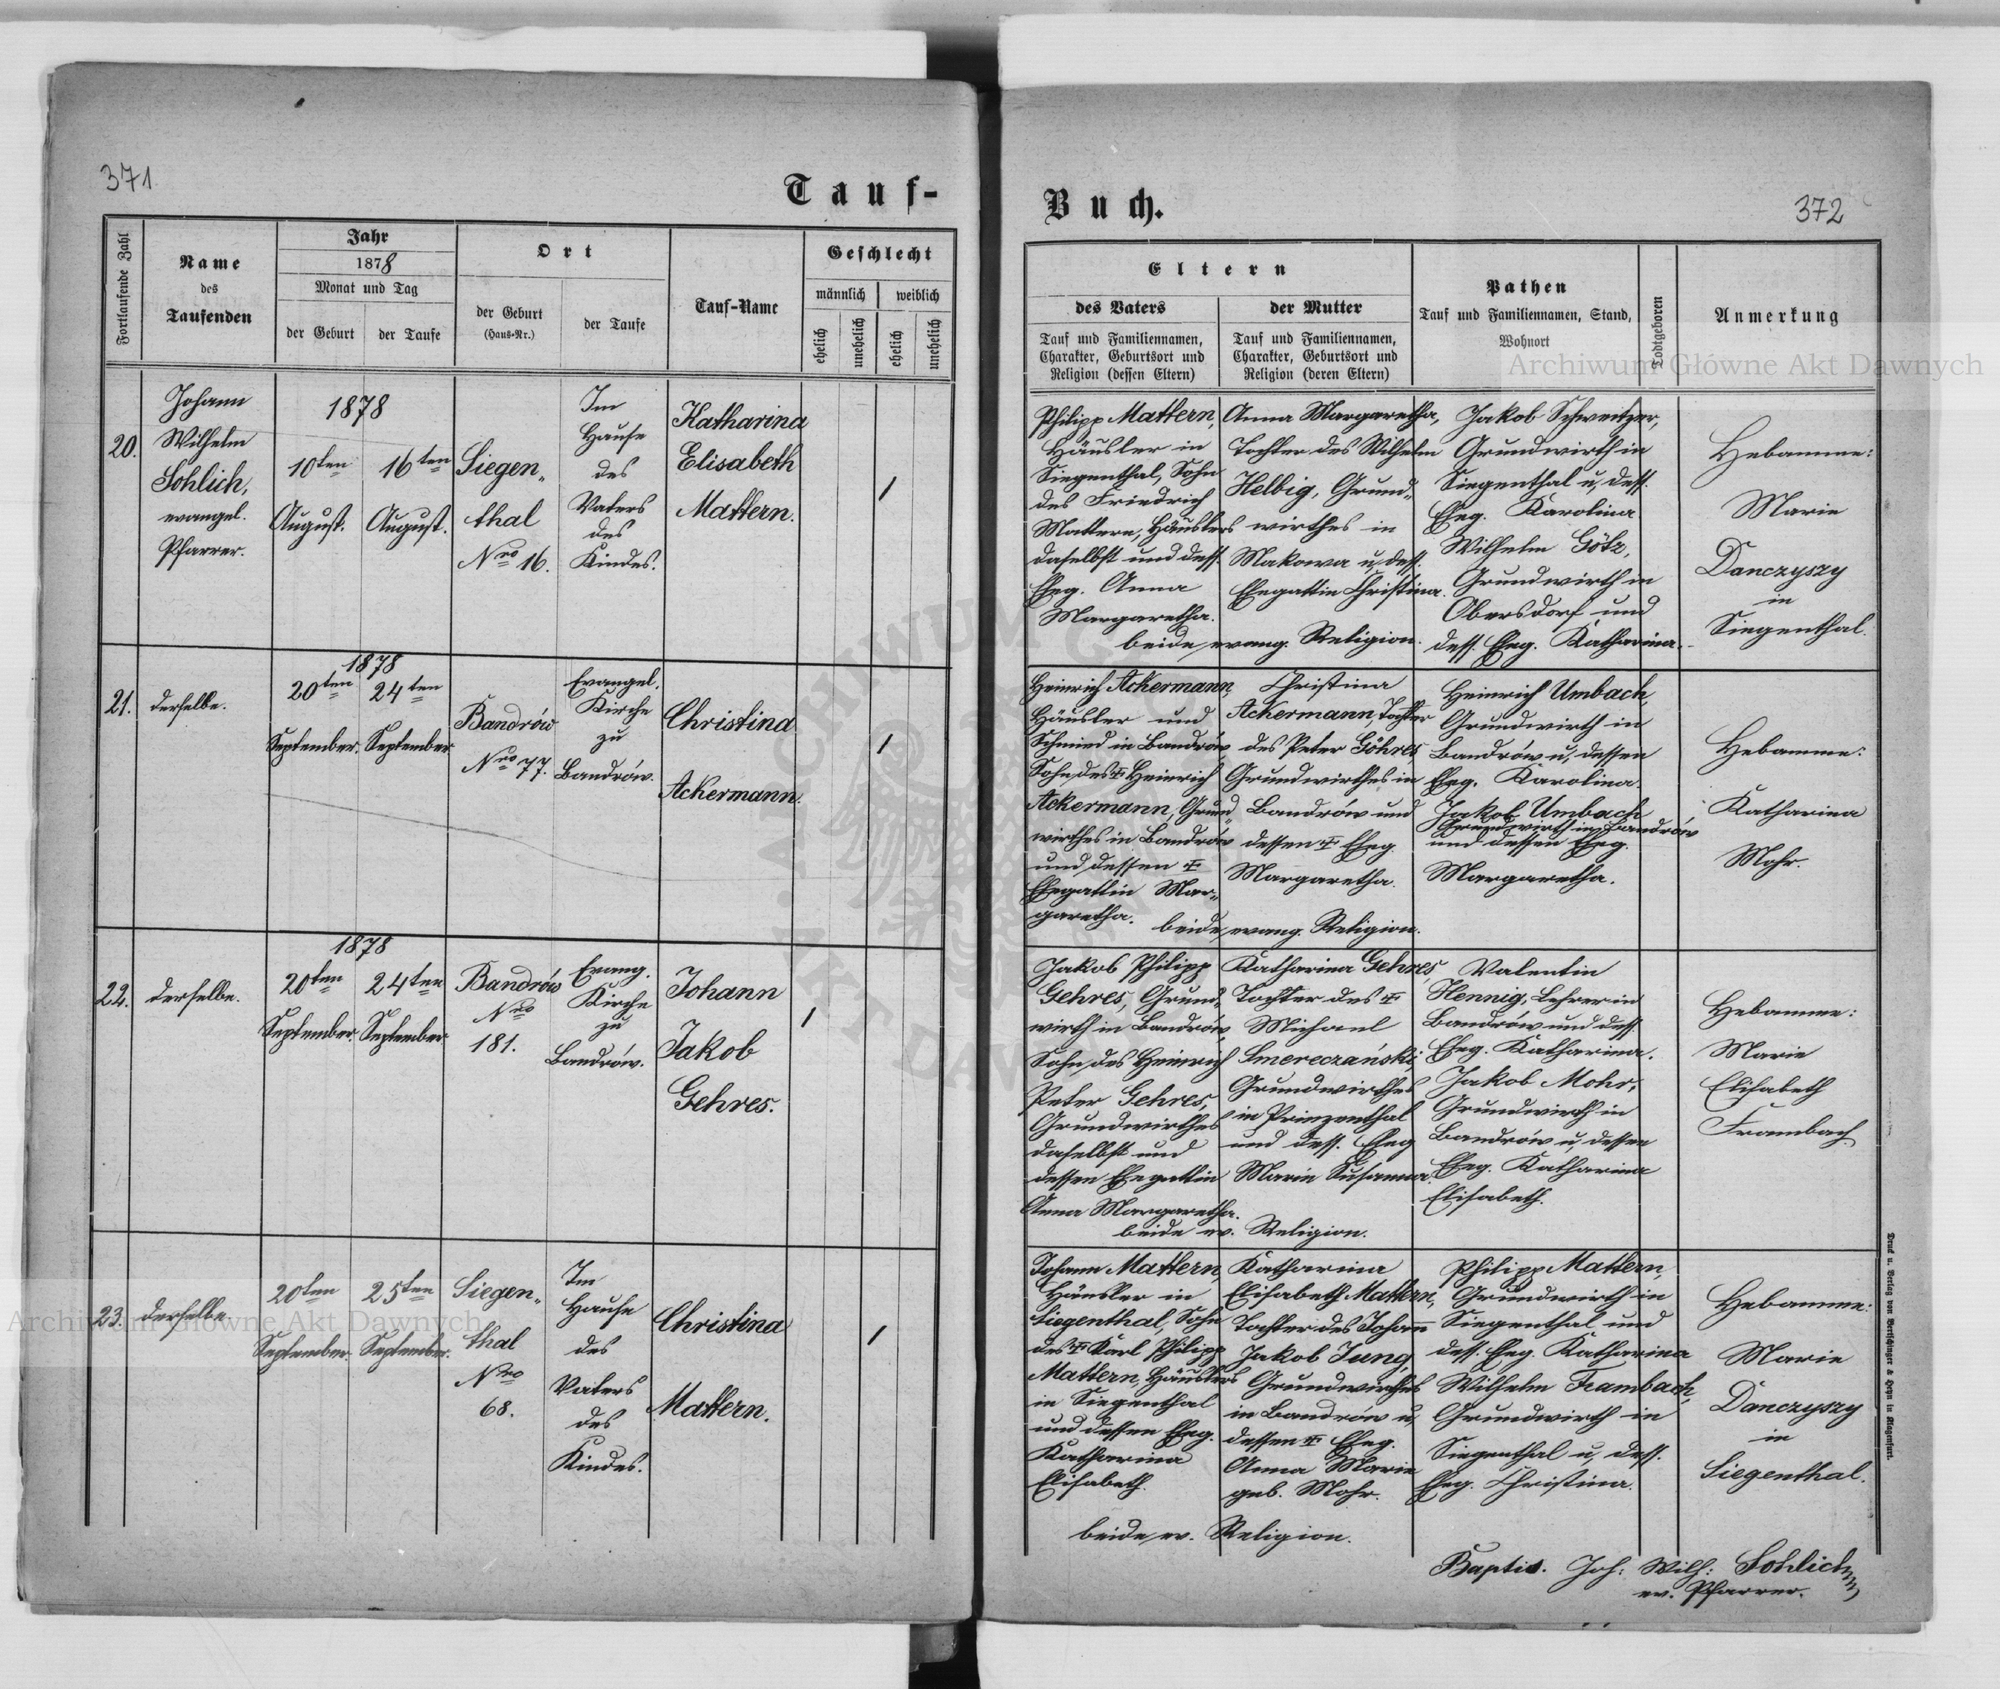 371
Tauf-
Fortlaufende Zahl
Name
des
Taufenden
Jahr
1878
Monat und Tag
der Geburt
der Taufe
Ort
der Geburt
(Haus-Nr.)
der Taufe
Tauf-Name
Geschlecht
männlich
weiblich
ehelich
unehelich
ehelich
unehelich
20.
Johann
Wilhelm
Sohlich,
evangel.
Pfarrer.
1878
10ten
August.
16ten
August.
Siegen„
thal
Nro 16.
Im
Hause
des
Vaters
des
Kindes.
Katharina
Elisabeth
Mattern.
1
21.
derselbe.
1878
20ten
September.
24ten
September
Bandrów
Nro 77.
Evangel.
Kirche
zu
Bandrów.
Christina
Ackermann.
1
22.
derselbe.
1878
20ten
September.
24ten
September
Bandrów
Nro
181.
Evang.
Kirche
zu
Bandrów.
Johann
Jakob
Gehres.
1
23.
derselbe.
20ten
September.
25ten
September.
Siegen„
thal
Nro
68.
Im
Hause
des
Vaters
des
Kindes.
Christina
Mattern.
1
Buch.
372
Eltern
des Vaters
Tauf und Familiennamen,
Charakter, Geburtsort und
Religion (dessen Eltern)
der Mutter
Tauf und Familiennamen,
Charakter, Geburtsort und
Religion (deren Eltern)
Pathen
Tauf und Familiennamen, Stand,
Wohnort
Todtgeboren
Anmerkung
Philipp Mattern,
Häusler in
Siegenthal, Sohn
des Friedrich
Mattern, Häuslers
daselbst und dess.
Eheg. Anna
Margaretha.
Anna Margaretha,
Tochter des Wilhelm
Helbig, Grund„
wirthes in
Makowa u, dess.
Ehegattin Christina.
beide evang. Religion.
Jakob Schweitzer,
Grundwirth in
Siegenthal u, dess.
Eheg. Karolina
Wilhelm Götz,
Grundwirth in
Obersdorf und
dess. Eheg. Katharina.
Hebamme:
Marie
Danczyszy
in
Siegenthal.
Heinrich Ackermann,
Häusler und
Schmied in Bandrów,
Sohn des ☦ Heinrich
Ackermann, Grund„
wirthes in Bandrów
und dessen ☦
Ehegattin Mar„
garetha.
Christina
Ackermann, Tochter
des Peter Göhres,
Grundwirthes in
Bandrów und
dessen ☦ Eheg.
Margaretha.
beide evang. Religion.
Heinrich Umbach,
Grundwirth in
Bandrów u, dessen
Eheg. Karolina.
Jakob Umbach
Grundwirth in Bandrów
und dessen Eheg.
Margaretha.
Hebamme:
Katharina
Mohr.
Jakob Philipp
Gehres, Grund„
wirth in Bandrów,
Sohn des Heinrich
Peter Gehres,
Grundwirthes
daselbst und
dessen Ehegattin
Anna Margaretha.
Katharina Gehres,
Tochter des ☦
Michael
Smereczański,
Grundwirthes
in Prinzenthal
und dess. Eheg
Marie Susanna.
beide ev. Religion.
Valentin
Hennig, Lehrer in
Bandrów und dess.
Eheg. Katharina.
Jakob Mohr,
Grundwirth in
Bandrów u, dessen
Eheg. Katharina
Elisabeth.
Hebamme:
Marie
Elisabeth
Frambach.
Johann Mattern,
Häusler in
Siegenthal, Sohn
des ☦ Karl Philipp
Mattern, Häuslers
in Siegenthal
und dessen Eheg.
Katharina
Elisabeth.
Katharina
Elisabeth Mattern,
Tochter des Johann
Jakob Jung,
Grundwirthes
in Bandrów u,
dessen ☦ Eheg.
Anna Marie
geb. Mohr.
beide ev. Religion.
Philipp Mattern,
Grundwirth in
Siegenthal und
dess. Eheg. Katharina
Wilhelm Frambach,
Grundwirth in
Siegenthal u, dess.
Eheg. Christina.
Hebamme:
Marie
Danczyszy
in
Siegenthal.
Baptis. Joh: Wilh: Sohlich
ev. Pfarrer.
Druck u. Verlag von Bertschinger & Heyn in Klagenfurt.
Archiwum Główne Akt Dawnych
Archiwum Główne Akt Dawnych